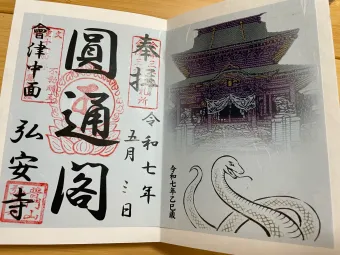 奉拝
令和七年
五月三日
圓通閣
會津中田
弘安寺
令和七年乙巳歳